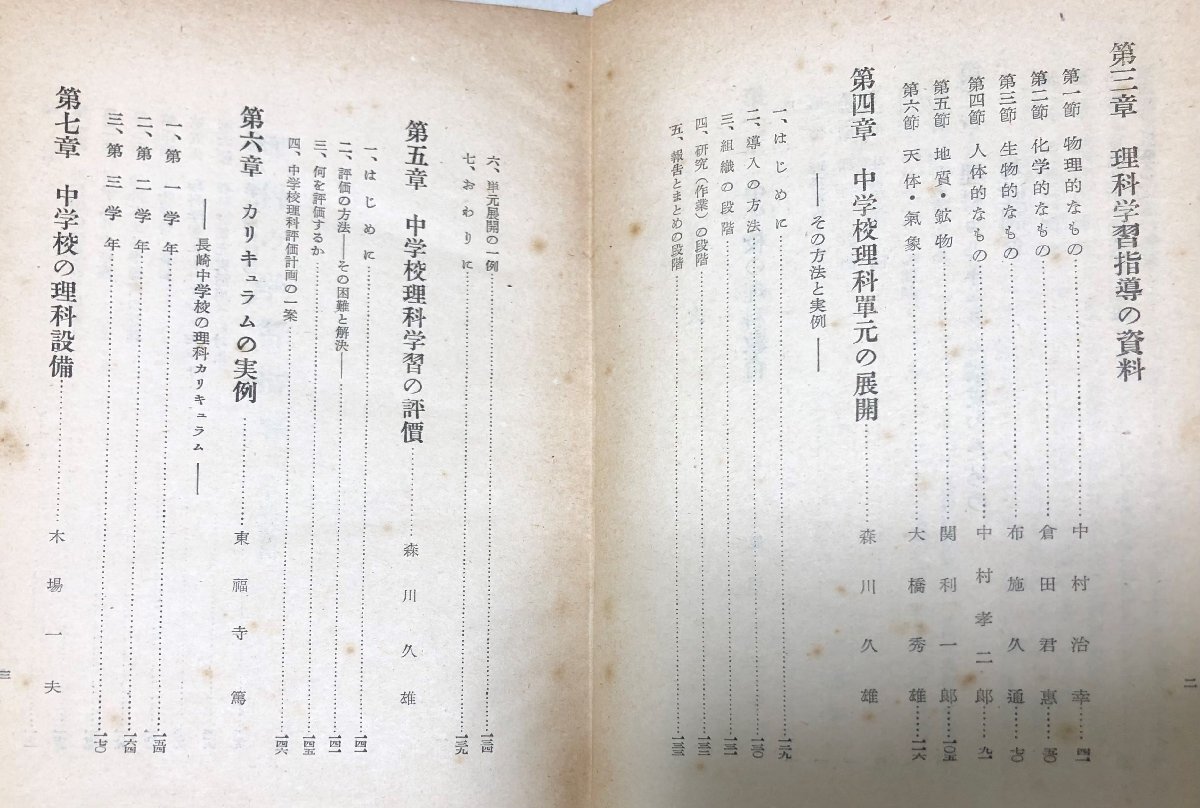 第三章 理科学習指導の資料
第一節 物理的なもの……中村治幸……四一
第二節 化学的なもの……倉田君惠……五〇
第三節 生物的なもの……布施久通……七〇
第四節 人体的なもの……中村孝二郎……九一
第五節 地質・鉱物……関利一郎……一〇五
第六節 天体・氣象……大橋秀雄……一一六
第四章 中学校理科單元の展開……森川久雄
——その方法と実例——
一、はじめに……一二九
二、導入の方法……一三〇
三、組織の段階……一三一
四、研究（作業）の段階……一三二
五、報告とまとめの段階……一三三
二
六、単元展開の一例……一三四
七、おわりに……一三九
第五章 中学校理科学習の評價……森川久雄
一、はじめに……一四一
二、評価の方法——その困難と解決——……一四一
三、何を評価するか……一四五
四、中学校理科評価計画の一案……一四六
第六章 カリキュラムの実例……東福寺篤
——長崎中学校の理科カリキュラム——
一、第一学年……一五四
二、第二学年……一六四
三、第三学年……一七〇
第七章 中学校の理科設備……木場一夫
三